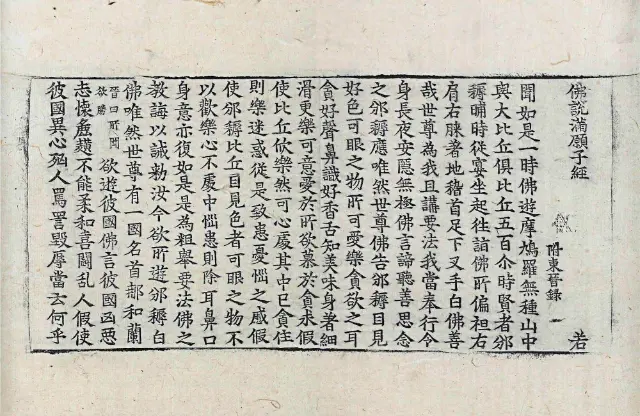 佛說滿願子經
附東晉錄 一 若
聞如是一時佛遊摩鳩羅無種山中
與大比丘俱比丘五百尒時賢者邠
耨晡時從宴坐起往詣佛所偏袒右
肩右膝著地稽首足下叉手白佛善
哉世尊為我且講要法我當奉行令
身長夜安隱無極佛言諦聽善思念
之邠耨應唯然世尊佛告邠耨目見
好色可眼之物所可愛樂貪欲之耳
貪好聲鼻識好香舌知美味身著細
滑更樂可意愛於所欲慕於貪求假
使比丘欣樂然可心處其中已貪住
則樂迷惑從是致患憂惱之慼假
使邠耨比丘目見色者可眼之物不
以歡樂心不處中惱患則除耳鼻口
身意亦復如是是為粗舉要法佛之
教誨以誡勑汝今欲所遊邠耨白
佛唯然世尊有一國名首部和蘭
晉曰所聞欲勝 欲遊彼國佛言彼國凶惡
志懷麁獷不能柔和喜鬪亂人假使
彼國異心㐫人罵詈毀辱當云何乎